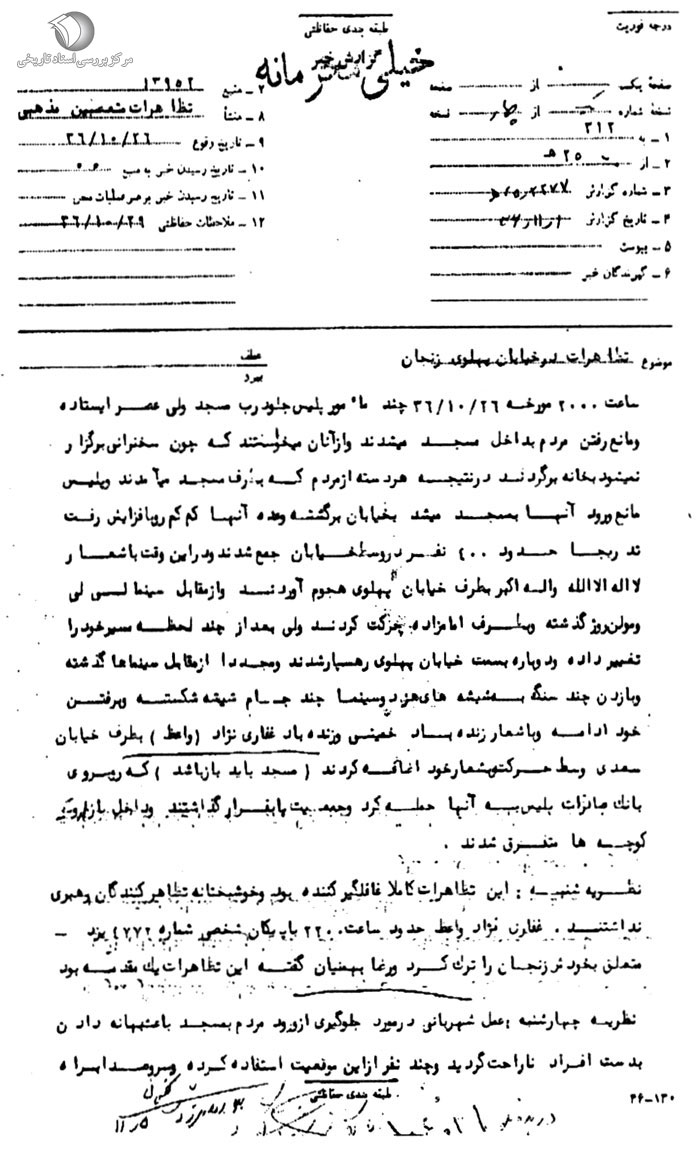 مرکز بررسی اسناد تاریخی
درجه فوریت
طبقه بندی حفاظتی
گزارش خبر
خیلی محرمانه
صفحهٔ یک از صفحه
نسخهٔ شماره از نسخه
۱ – به ۳۱۲
۲ – از ۲۵ هـ
۳ – شماره گزارش
۴ – تاریخ گزارش
۵ – پیوست
۶ – گیرندگان خبر
۷ – منبع ۱۳۹۵۲
۸ – منشأ تظاهرات متعصبین مذهبی
۹ – تاریخ وقوع ۳۶/۱۰/۲۶
۱۰ – تاریخ رسیدن خبر به منبع
۱۱ – تاریخ رسیدن خبر به رهبر عملیات
۱۲ – ملاحظات حفاظتی ۳۶/۱۰/۲۹
موضوع تظاهرات در خیابان پهلوی زنجان
عطف
پیرو
ساعت ۲۰۰۰ مورخه ۳۶/۱۰/۲۶ چند مأمور پلیس جلو درب مسجد ولی عصر ایستاده
و مانع رفتن مردم بداخل مسجد میشدند و از آنان میخواستند که چون سخنرانی برگزار
نمیشود بخانه برگردند در نتیجه هر دسته از مردم که بطرف مسجد میآمدند و پلیس
مانع ورود آنها بمسجد میشد بخیابان برگشته و عده آنها کم کم رو بافزایش رفت
تدریجا حدود ۴۰۰ نفر در وسط خیابان جمع شدند و در این وقت با شعار
لا اله الا الله و اله اکبر بطرف خیابان پهلوی هجوم آوردند و از مقابل سینما لسی لی
و مولن روژ گذشته و بطرف امامزاده حرکت کردند ولی بعد از چند لحظه مسیر خود را
تغییر داده و دوباره بسمت خیابان پهلوی رهسپار شدند و مجددا از مقابل سینماها گذشته
و با زدن چند سنگ به شیشه های هر دو سینما چند جام شیشه شکسته و برفتن
خود ادامه و با شعار زنده باد خمینی و زنده باد غفاری نژاد (واعظ) بطرف خیابان
سعدی وسط حرکت و بشعار خود اضافه کردند (مسجد باید باز باشد) که روبروی
بانک صادرات پلیس به آنها حمله کرد و جمعیت پا بفرار گذاشتند و داخل بازار و
کوچه ها متفرق شدند .
نظریه شنبه : این تظاهرات کاملا غافلگیر کننده بود و خوشبختانه تظاهر کنندگان رهبری
نداشتند . غفاری نژاد واعظ حدود ساعت ۲۲۰۰ با پیکان شخصی شماره ۴۷۷۲ یزد –
متعلق بخود شهر زنجان را ترک کرد و رضا بهمنیان گفته این تظاهرات یک مقدمه بود
نظریه چهارشنبه : عمل شهربانی در مورد جلوگیری از ورود مردم بمسجد باعث بهانه دادن
بدست افراد ناراحت گردید و چند نفر از این موقعیت استفاده کرده و سر و صدا براه
طبقه بندی حفاظتی
۳۶–۱۳۰